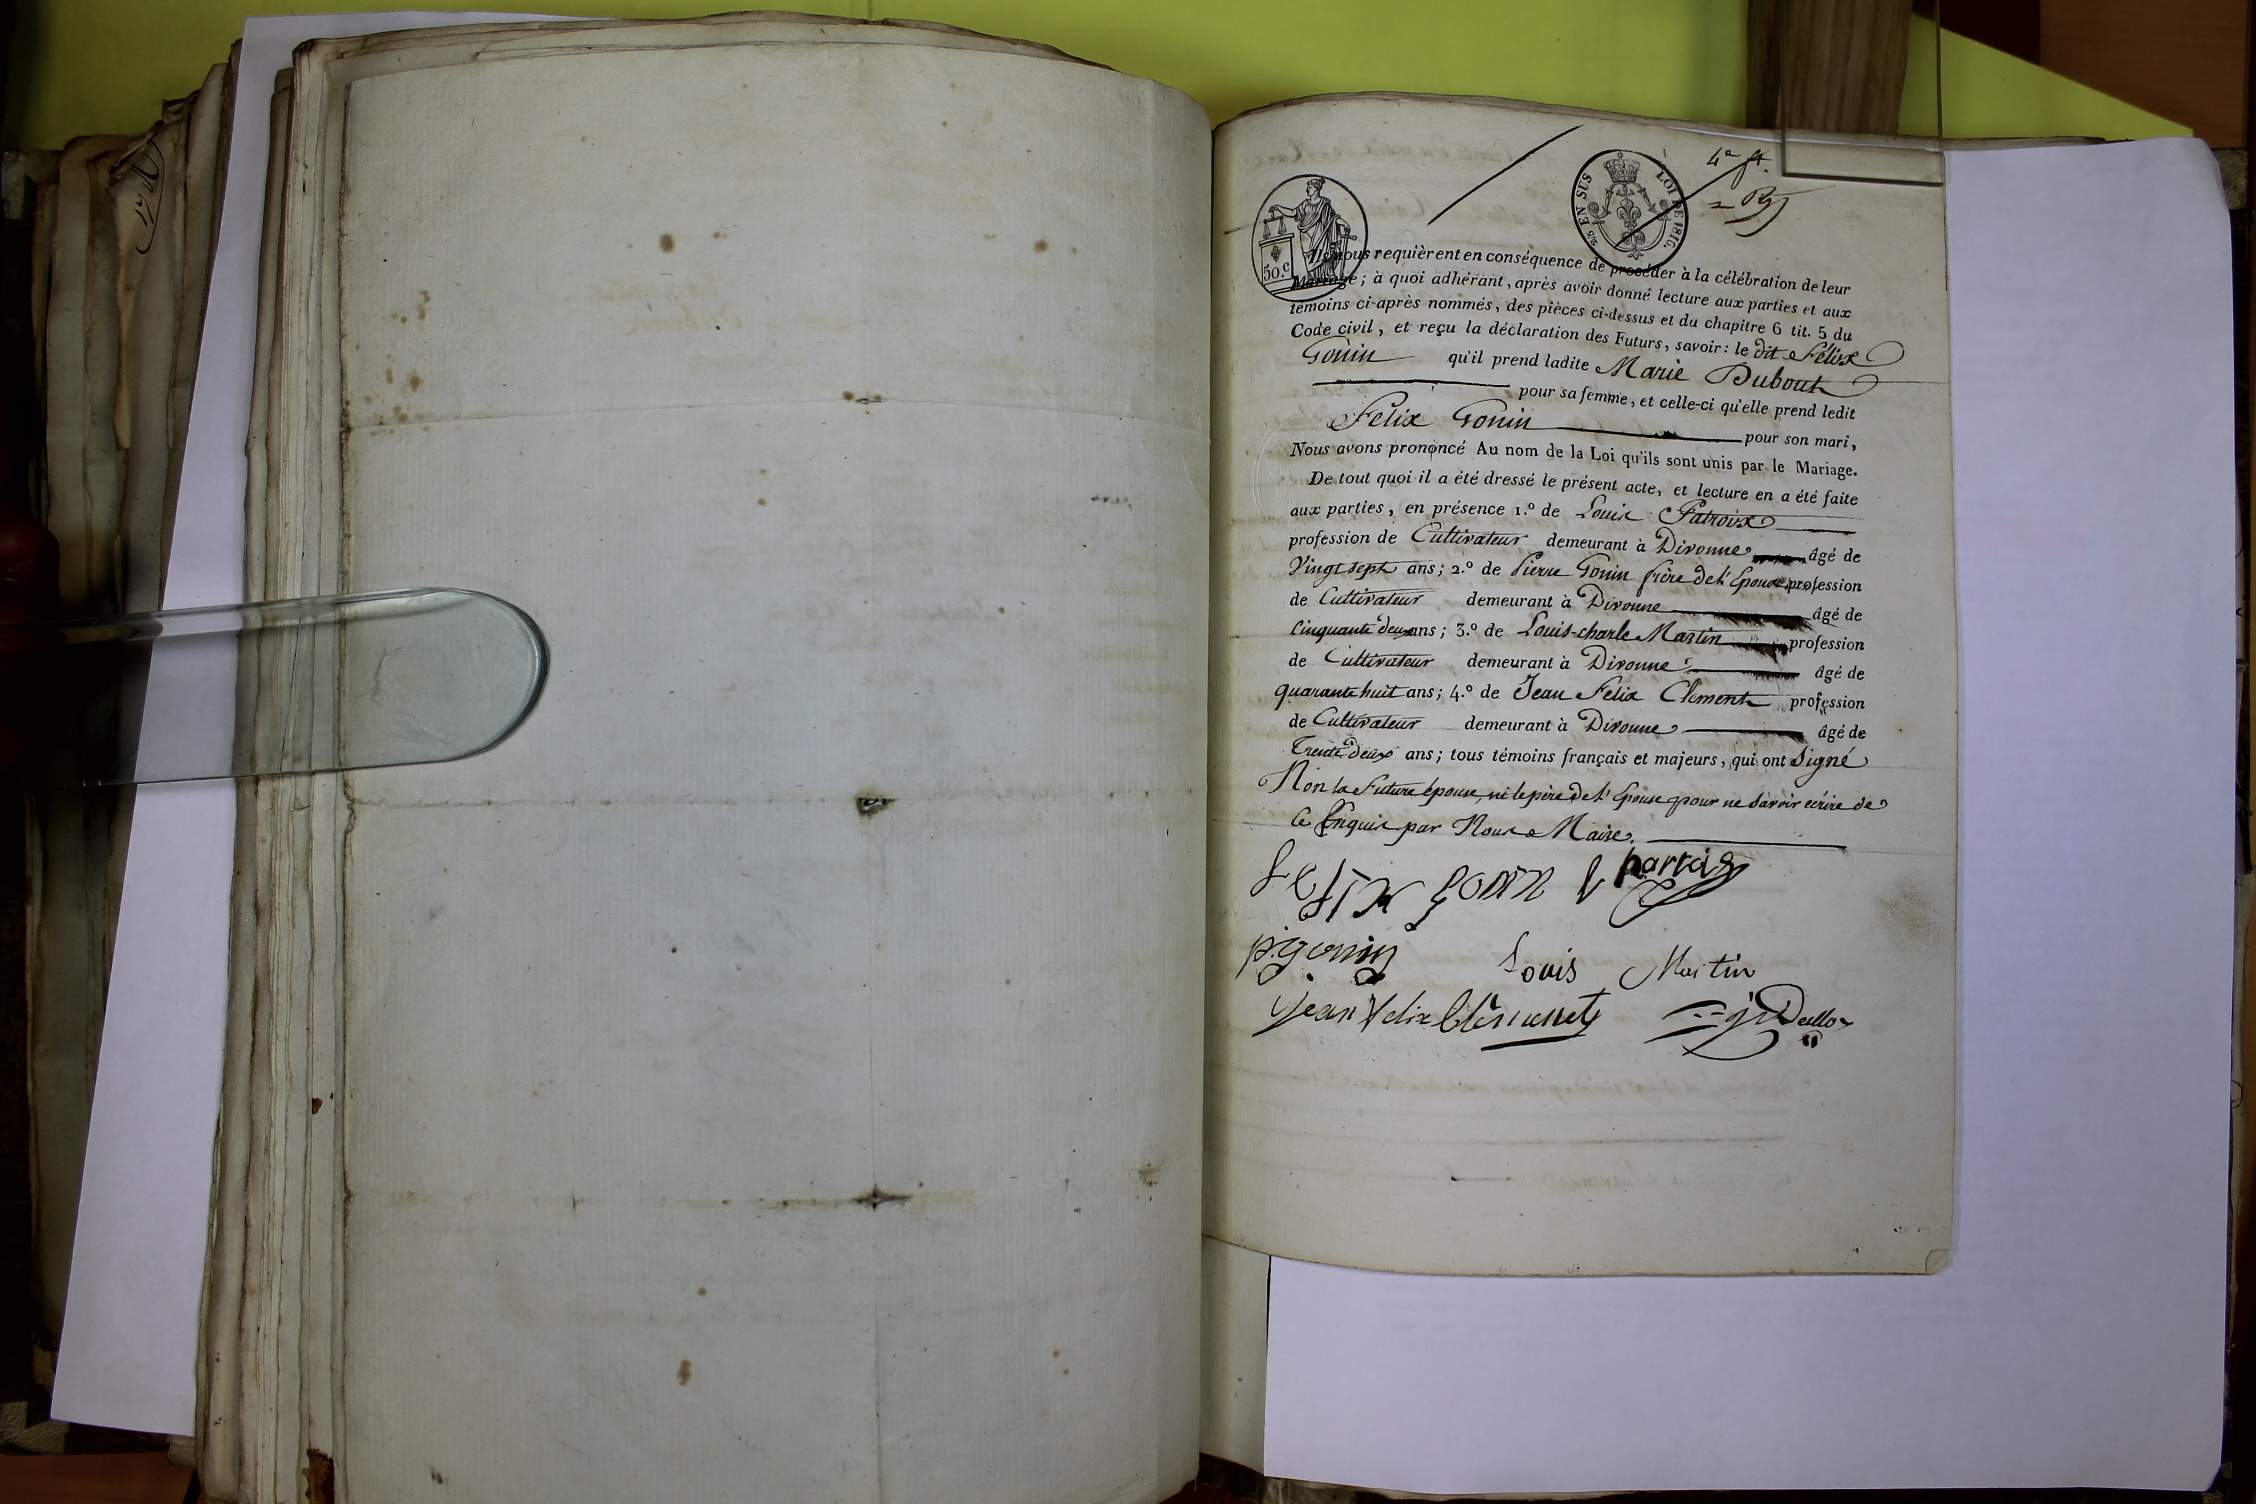 4e ft.
2/5 EN SUS LOI DE 1816.
50.c
Ils nous requièrent en conséquence de procéder à la célébration de leur
Mariage; à quoi adhérant, après avoir donné lecture aux parties et aux
témoins ci-après nommés, des pièces ci-dessus et du chapitre 6 tit. 5 du
Code civil, et reçu la déclaration des Futurs, savoir: le dit Félix
Gonin qu'il prend ladite Marie Dubout
pour sa femme, et celle-ci qu'elle prend ledit
Felix Gonin pour son mari,
Nous avons prononcé Au nom de la Loi qu'ils sont unis par le Mariage.
De tout quoi il a été dressé le présent acte, et lecture en a été faite
aux parties, en présence 1.º de Louis Patroix
profession de Cultivateur demeurant à Divonne âgé de
Vingt sept ans; 2.º de Pierre Gonin frère de l'Epoux profession
de Cultivateur demeurant à Divonne âgé de
Cinquante deux ans; 3.º de Louis-charle Martin profession
de Cultivateur demeurant à Divonne âgé de
quarante huit ans; 4.º de Jean Felix Clement profession
de Cultivateur demeurant à Divonne âgé de
Trente deux ans; tous témoins français et majeurs, qui ont Signé
Non la Future épouse, ni le père de l'Epouse pour ne savoir écrire de
Ce Enquis par Nous Maire.
felix gonin l
p. gonin Louis Martin
jean felix Clément